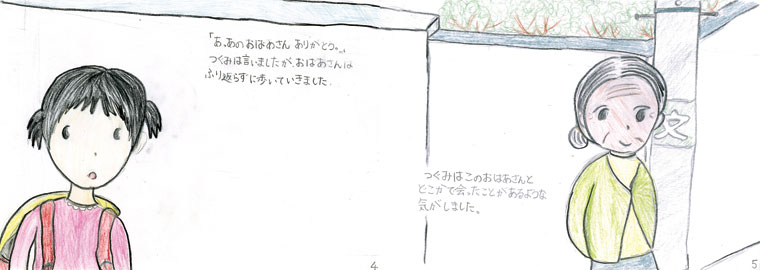 「あ、あのおばあさん ありがとう。」
つぐみは言いましたが、おばあさんは
ふり返らずに歩いていきました。
つぐみはこのおばあさんと
どこかで会ったことがあるような
気がしました。
文
4
5